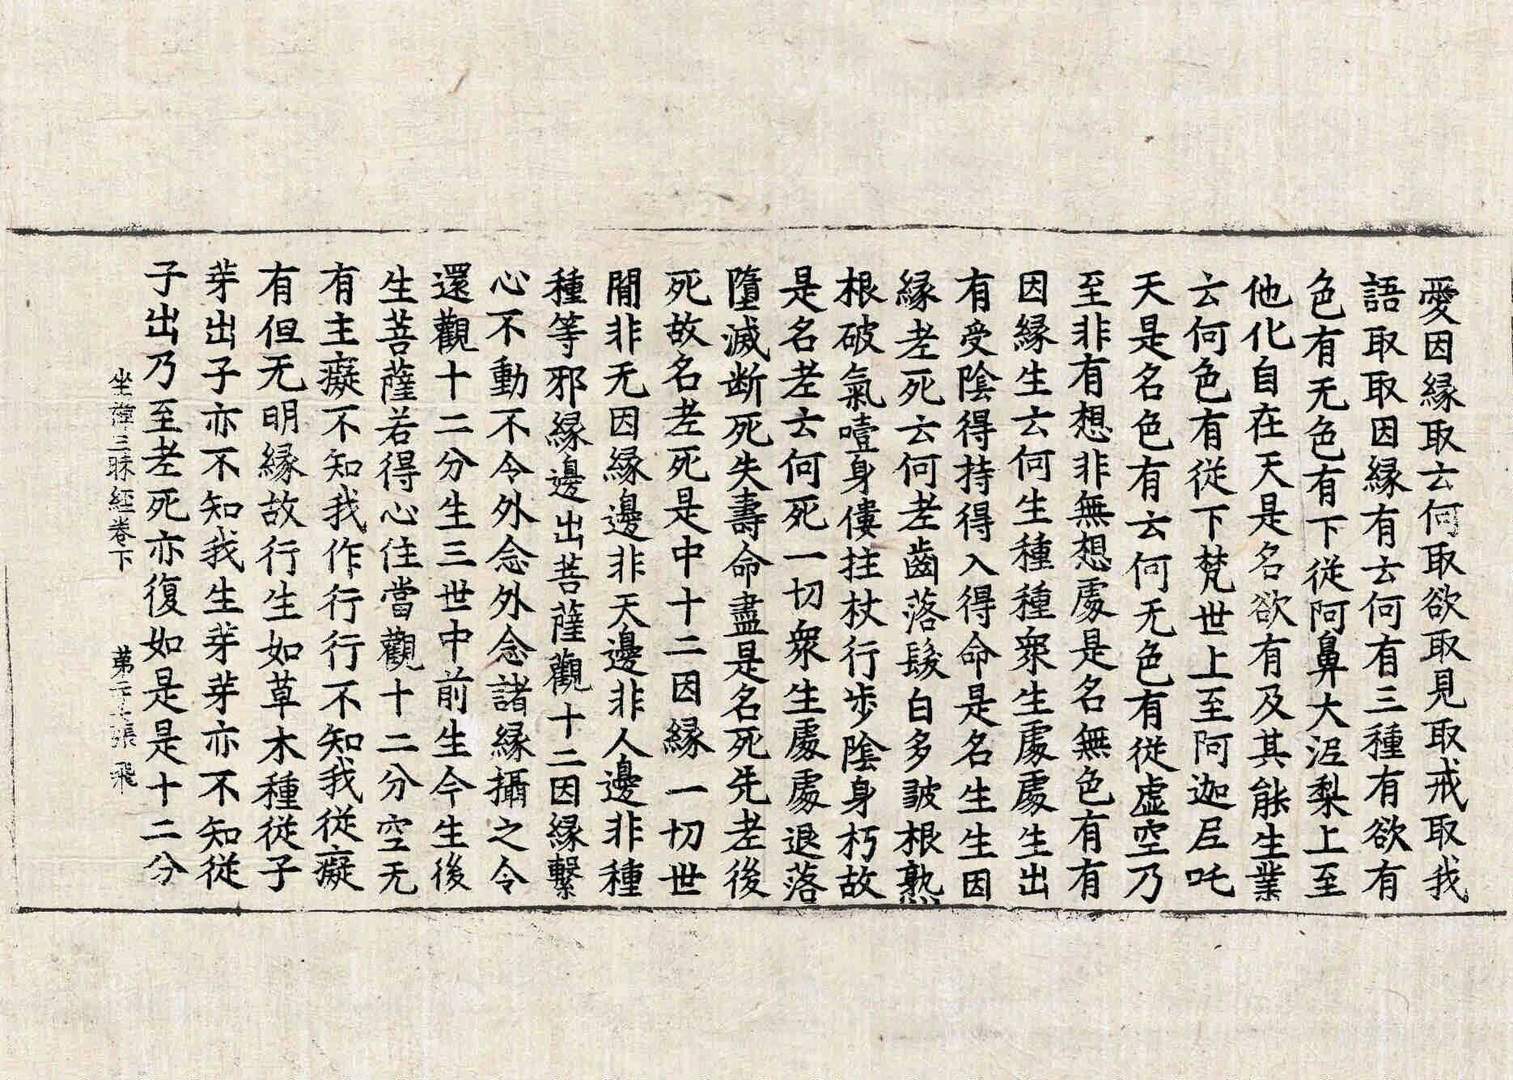 愛因緣取云何取欲取見取戒取我
語取取因緣有云何有三種有欲有
色有无色有下從阿鼻大泥犁上至
他化自在天是名欲有及其能生業
云何色有從下梵世上至阿迦尼吒
天是名色有云何无色有從虛空乃
至非有想非無想處是名無色有有
因緣生云何生種種衆生處處生出
有受陰得持得入得命是名生生因
緣老死云何老齒落髮白多皺根熟
根破氣噎身僂拄杖行步陰身朽故
是名老云何死一切衆生處處退落
墮滅断死失壽命盡是名死先老後
死故名老死是中十二因緣一切世
間非无因緣邊非天邊非人邊非種
種等邪緣邊出菩薩觀十二因緣繫
心不動不令外念外念諸緣攝之令
還觀十二分生三世中前生今生後
生菩薩若得心住當觀十二分空无
有主癡不知我作行行不知我從癡
有但无明緣故行生如草木種從子
芽出子亦不知我生芽芽亦不知從
子出乃至老死亦復如是是十二分
坐禪三昧經卷下 第二十張 飛